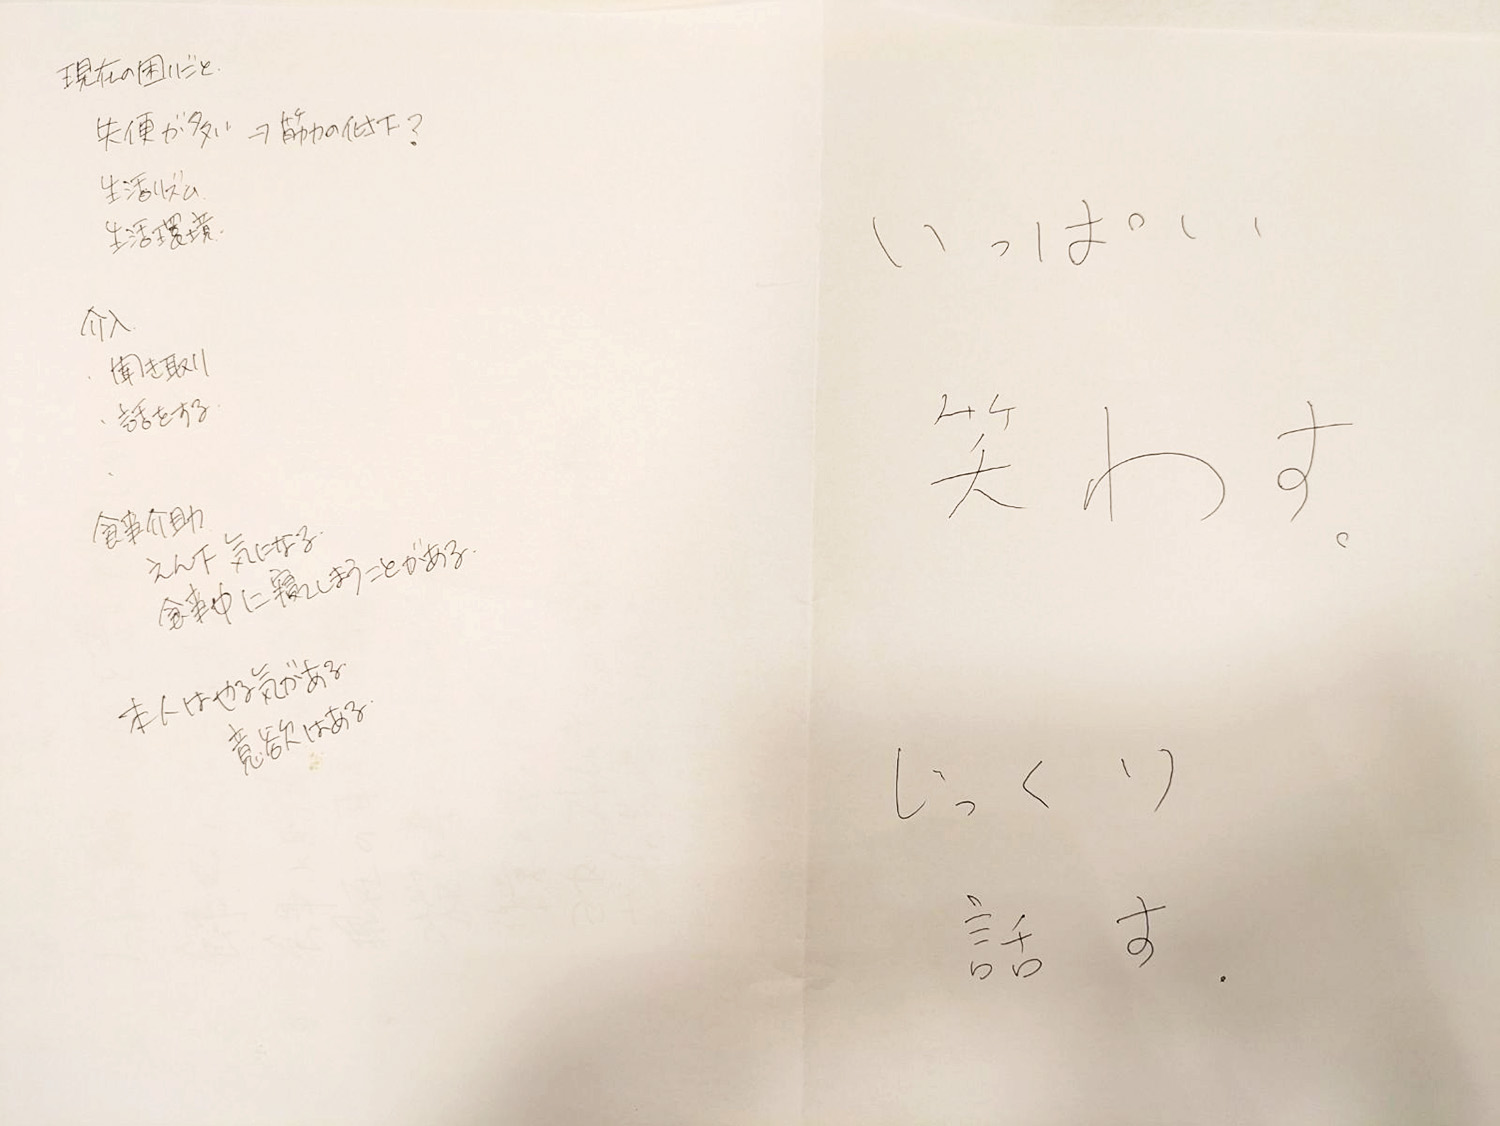 現在の困りごと
失便が多い ⇒ 筋力の低下?
生活リズム
生活環境
介入
・聞き取り
・話をする
・
食事介助
えん下 気になる
食事中に寝てしまうことがある
本人はやる気がある
意欲はある
いっぱい
笑わす。
じっくり
話す.